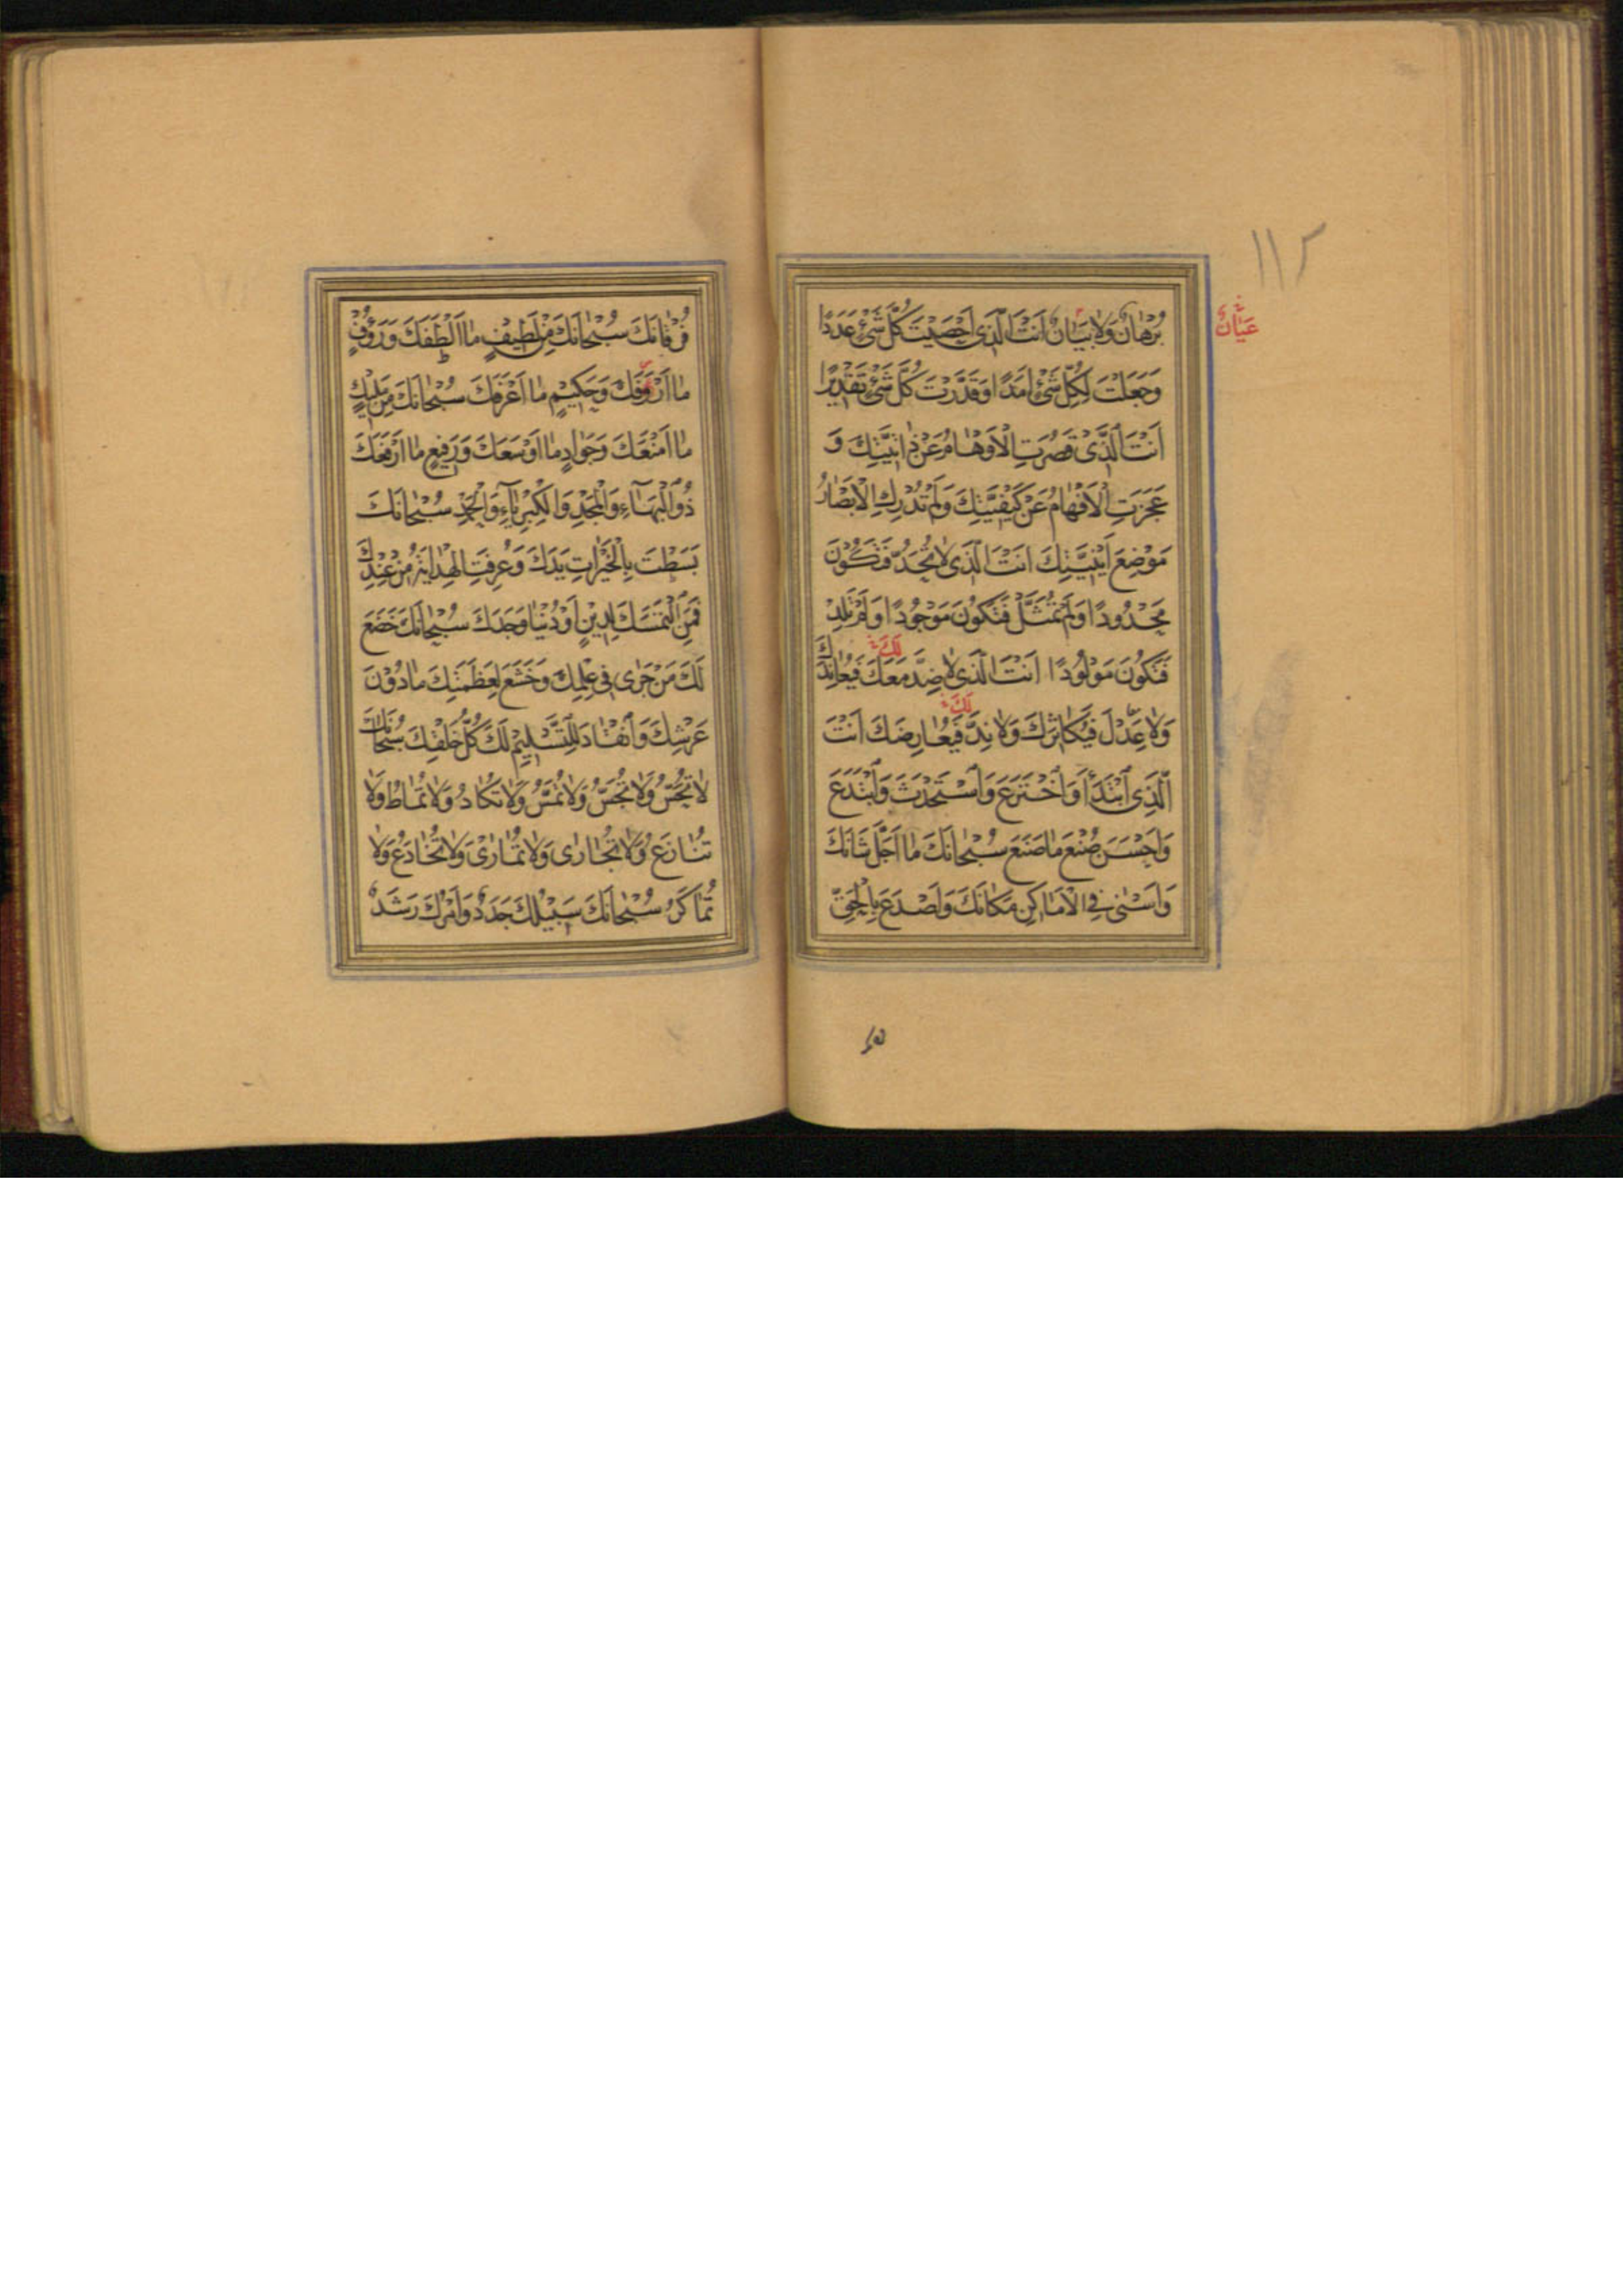 ١١٢
عَيَانٌ
بُرْهَانٌ وَلَا بَيَانٌ أَنْتَ الَّذِي أَحْصَيْتَ كُلَّ شَيْءٍ عَدَدًا
وَجَعَلْتَ لِكُلِّ شَيْءٍ أَمَدًا وَقَدَّرْتَ كُلَّ شَيْءٍ تَقْدِيرًا
أَنْتَ الَّذِي قَصُرَتِ الْأَوْهَامُ عَنْ ذَاتِيَّتِكَ وَ
عَجَزَتِ الْأَفْهَامُ عَنْ كَيْفِيَّتِكَ وَلَمْ تُدْرِكِ الْأَبْصَارُ
مَوْضِعَ أَيْنِيَّتِكَ أَنْتَ الَّذِي لَا تُحَدُّ فَتَكُونَ
مَحْدُودًا وَلَمْ تُمَثَّلْ فَتَكُونَ مَوْجُودًا وَلَمْ تَلِدْ
فَتَكُونَ مَوْلُودًا أَنْتَ الَّذِي لَا ضِدَّ مَعَكَ فَيُعَانِدَكَ
لَكَ
وَلَا عِدْلَ فَيُكَاثِرَكَ وَلَا نِدَّ فَيُعَارِضَكَ أَنْتَ
لَكَ
الَّذِي ابْتَدَأَ وَاخْتَرَعَ وَاسْتَحْدَثَ وَابْتَدَعَ
وَأَحْسَنَ صُنْعَ مَا صَنَعَ سُبْحَانَكَ مَا أَجَلَّ شَأْنَكَ
وَأَسْنَى فِي الْأَمَاكِنِ مَكَانَكَ وَأَصْدَعَ بِالْحَقِّ
فُرْقَانَكَ سُبْحَانَكَ مِنْ لَطِيفٍ مَا أَلْطَفَكَ وَرَؤُوفٍ
مَا أَرْأَفَكَ وَحَكِيمٍ مَا أَعْرَفَكَ سُبْحَانَكَ مِنْ مَلِيكٍ
مَا أَمْنَعَكَ وَجَوَادٍ مَا أَوْسَعَكَ وَرَفِيعٍ مَا أَرْفَعَكَ
ذُو الْبَهَاءِ وَالْمَجْدِ وَالْكِبْرِيَاءِ وَالْحَمْدِ سُبْحَانَكَ
بَسَطْتَ بِالْخَيْرَاتِ يَدَكَ وَعُرِفَتِ الْهِدَايَةُ مِنْ عِنْدِكَ
فَمَنِ الْتَمَسَكَ لِدِينٍ أَوْ دُنْيَا وَجَدَكَ سُبْحَانَكَ خَضَعَ
لَكَ مَنْ جَرَى فِي عِلْمِكَ وَخَشَعَ لِعَظَمَتِكَ مَا دُونَ
عَرْشِكَ وَانْقَادَ لِلتَّسْلِيمِ لَكَ كُلُّ خَلْقِكَ سُبْحَانَكَ
لَا تُحَسُّ وَلَا تُجَسُّ وَلَا تُمَسُّ وَلَا تُكَادُ وَلَا تُمَاطُ وَلَا
تُنَازَعُ وَلَا تُجَارَى وَلَا تُمَارَى وَلَا تُخَادَعُ وَلَا
تُمَاكَرُ سُبْحَانَكَ سَبِيلُكَ جَدَدٌ وَأَمْرُكَ رَشَدٌ